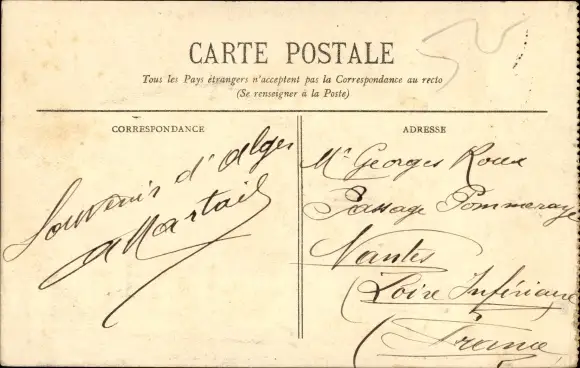 CARTE POSTALE
Tous les Pays étrangers n'acceptent pas la Correspondance au recto
(Se renseigner à la Poste)
CORRESPONDANCE
Souvenir d'Alger
ADRESSE
Mr Georges Roux
Passage Pommeraye
Nantes
(Loire Inférieure
France